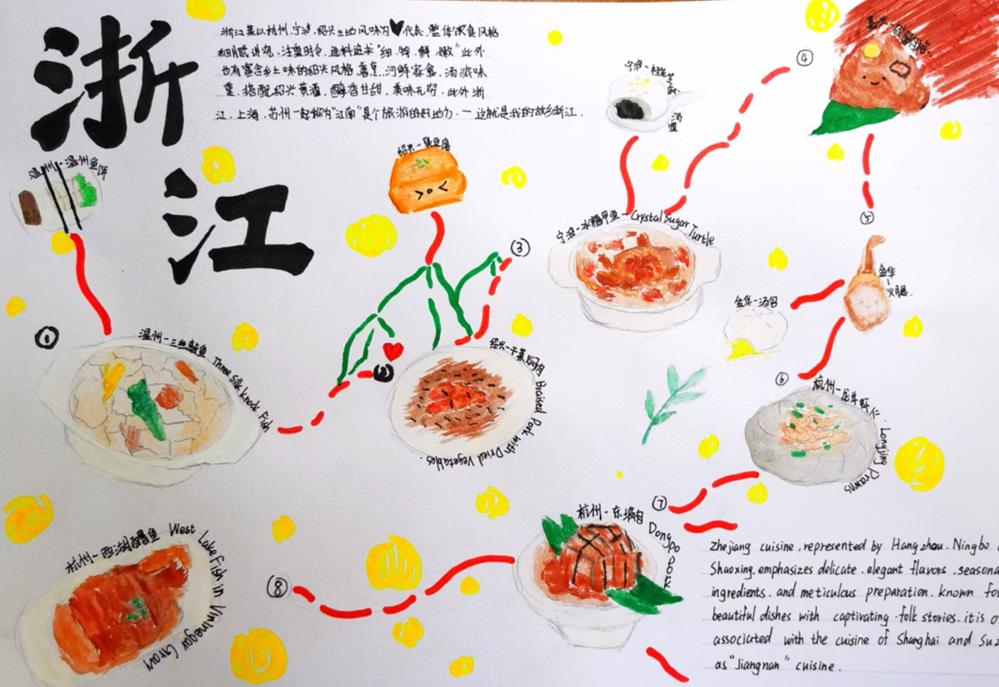 浙
江
浙江菜以杭州、宁波、绍兴三地风味为♥代表,整体浙食风格
细腻讲究,注重时令,选料追求"细、特、鲜、嫩"此外
也有富含乡土味的绍兴风格,喜烹河鲜家禽,汤浓味
重,搭配绍兴黄酒,酶香甘甜,美味无穷。此外浙
江、上海、苏州一起称为"江南"是个旅游的好地方,一这就是我的故乡浙江.
温州-温州鱼饼
绍兴-臭豆腐
宁波-
汤圆
④
嘉兴-
③
宁波-冰糖甲鱼-Crystal Sugar Turtle
⑤
金华-火腿
金华-汤包
①
温州-三丝敲鱼 Three Silk Knock Fish
②
绍兴-干菜焖肉 Braised Pork with Dried Vegetables.
⑥
杭州-龙井虾仁. Longjing Prawns
⑦
杭州-东坡肉 Dongpo Pork
杭州-西湖醋鱼 West Lake Fish in Vininegar Gravy
⑧
Zhejiang cuisine, represented by Hangzhou. Ningbo
Shaoxing, emphasizes delicate. elegant flavors. seasona
ingredients. and meticulous preparation. known fo
beautiful dishes with captivating folk stories. it is o
associated with the cuisine of Shanghai and Su
as "Jiangnan" cuisine.